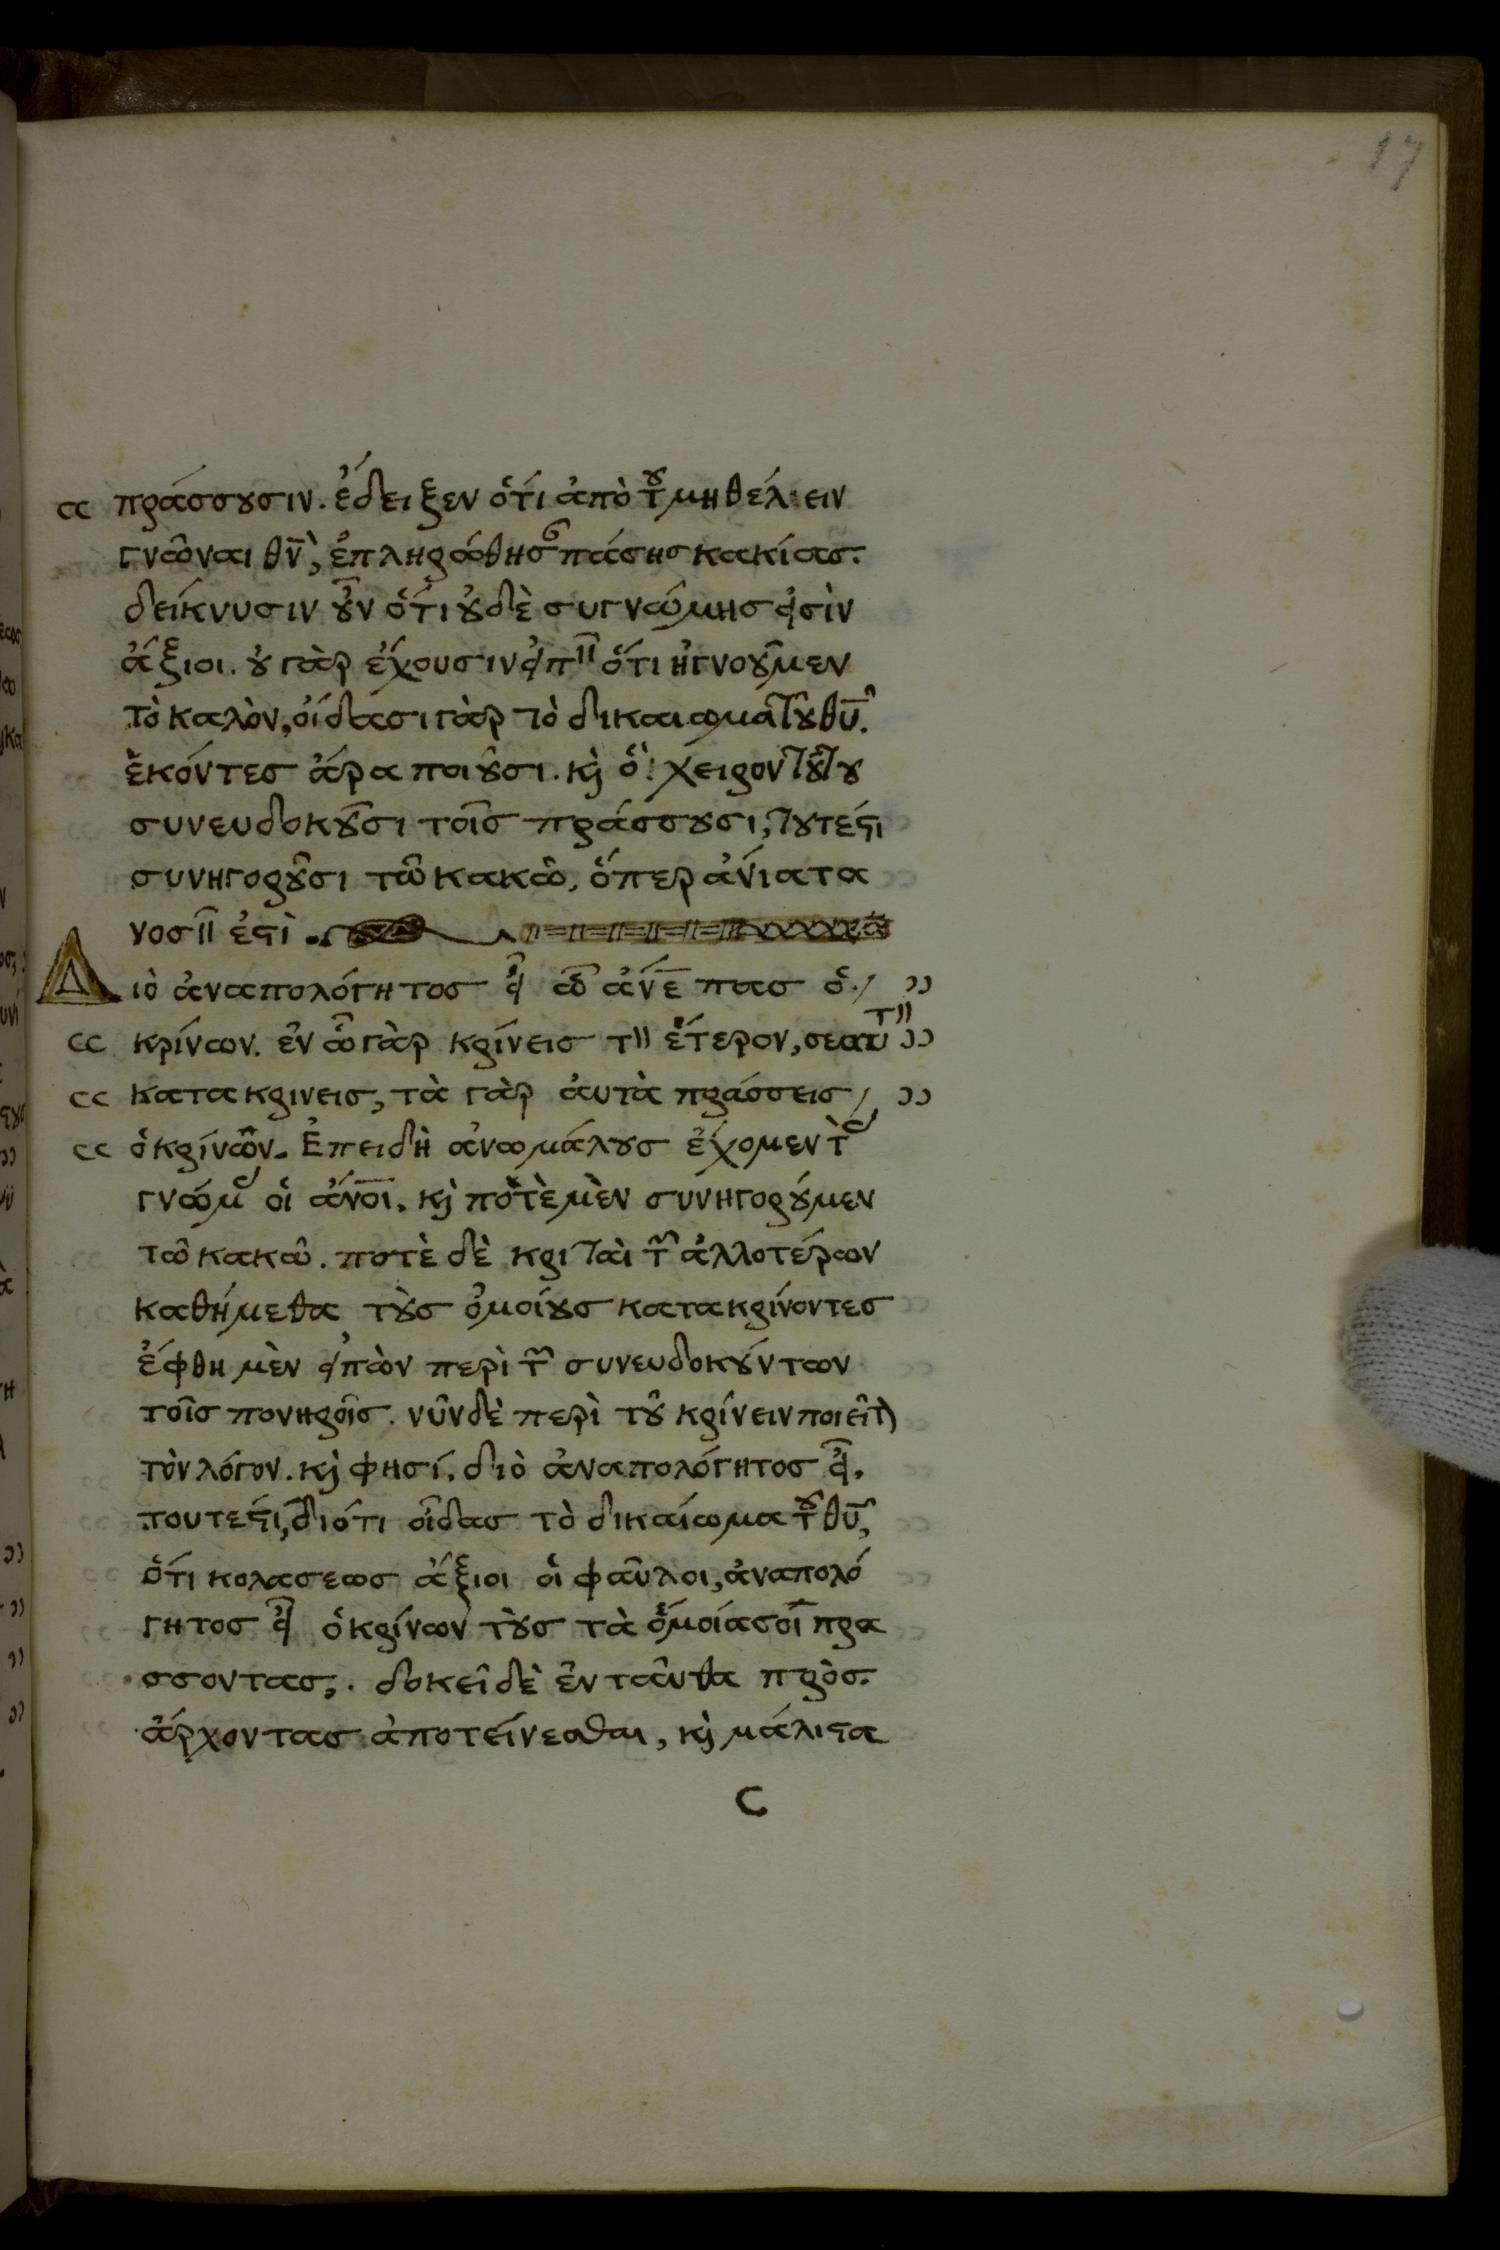 17
πράσσουσιν. ἔδειξεν ὅτι ἀπὸ τοῦ μὴ θέλειν
γνῶναι θν̅, ἐπληρώθησαν πάσης κακίας.
δείκνυσιν οὖν ὅτι οὐδὲ συγνώμης εἰσὶν
ἄξιοι. οὐ γὰρ ἔχουσιν εἰπεῖν ὅτι ἠγνοοῦμεν
τὸ καλὸν, οἴδασι γὰρ τὸ δικαίωμα τοῦ θυ̅.
ἑκόντες ἄρα ποιοῦσι. κὶ ὃ χεῖρον τούτου
συνευδοκοῦσι τοῖς πράσσουσι, τουτέστι
συνηγοροῦσι τῶ κακῶ, ὅπερ ἀνίατα
νοσεῖν ἐστὶ.
Διὸ ἀναπολόγητος εἶ ὦ ἄνε̅ πας ὁ
κρίνων. ἐν ὧ γὰρ κρίνεις τὸν ἕτερον, σεαυτὸν
κατακρινεις, τὰ γὰρ ἀυτὰ πράσσεις
ὁ κρίνων. Ἐπειδὴ ἀνωμάλους ἔχομεν τὰς
γνώμας οἱ ἄνοι̅. κὶ ποτὲ μὲν συνηγοροῦμεν
τῶ κακῶ. ποτὲ δὲ κριταὶ τῶν ἀλλοτέρων
καθήμεθα τοὺς ὁμοίους κατακρίνοντες
ἔφθη μὲν εἰπὼν περὶ τῶν συνευδοκούντων
τοῖς πονηροῖς. νῦν δὲ περὶ τοῦ κρίνειν ποιεῖται
τὸν λόγον. κὶ φησί. διὸ ἀναπολόγητος εἶ.
τουτέστι, διότι οἶδας τὸ δικαίωμα τοῦ θυ̅,
ὅτι κολασεως ἄξιοι οἱ φαῦλοι, ἀναπολό
γητος εἶ ὁ κρίνων τοὺς τὰ ὅμοιά σοι πρα
σσοντας,. δοκεῖ δὲ ἐνταῦθα πρὸς
ἄρχοντας ἀποτείνεσθαι, κὶ μάλιστα
C